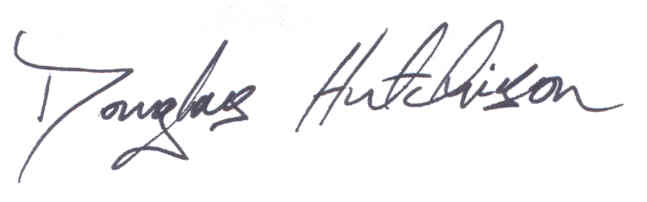 Douglas Hutchison